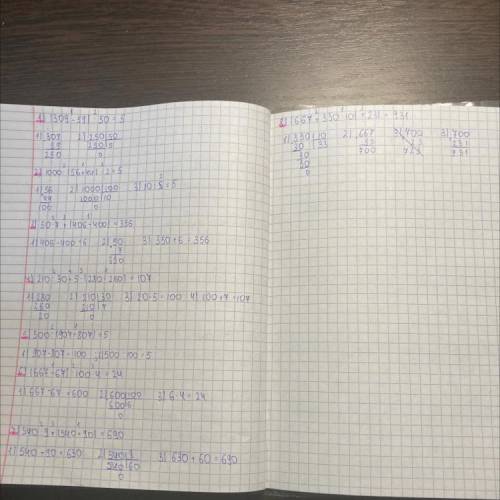 1) (309-59) : 50 = 5
1) 307 2) 250|50
59 250|5
250 0
2) 1000 : (56+44) : 2 = 5
1) 56 2) 1000|100 3) 10:2=5
44 1000|10
100 0
3) 50·7+(406-400)=356
1) 406-400=6 2) 50 3) 350+6=356
7
350
4) 210:30+5·(280-260)=107
1) 280 2) 210|30 3) 20·5=100 4) 100+7=107
260 210|7
20 0
5) 500:(907-807)=5
1) 907-807=100 2) 500:100=5
6) (667-67):100·4=24
1) 667-67=600 2) 600|100 3) 6·4=24
600|6
0
7) 540:9+(540+90)=690
1) 540+90=630 2) 540|9 3) 630+60=690
540|60
0
8) (667+330:10)+231=931
1) 330|10 2) 667 3) 700
30|33 700 231
30 931
30
0